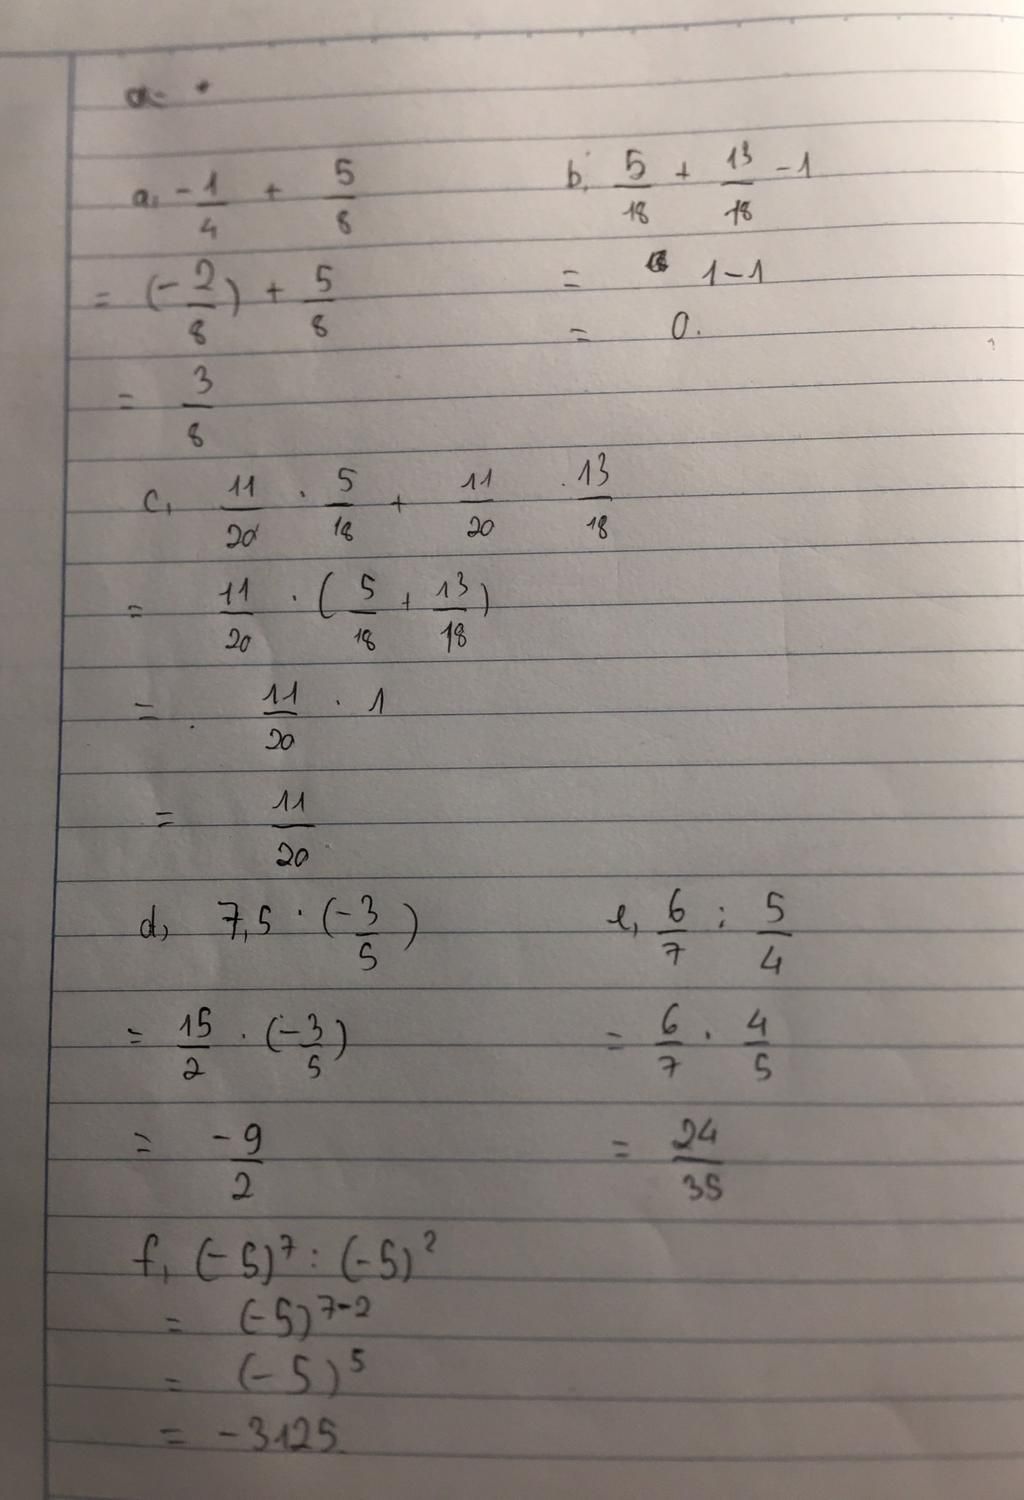 a, -1/4 + 5/8
= (-2/8) + 5/8
= 3/8
b, 5/18 + 13/18 - 1
= 1-1
= 0.
c, 11/20 . 5/18 + 11/20 . 13/18
= 11/20 . (5/18 + 13/18)
= 11/20 . 1
= 11/20
d, 7,5 . (-3/5)
= 15/2 . (-3/5)
= -9/2
e, 6/7 : 5/4
= 6/7 . 4/5
= 24/35
f, (-5)⁷ : (-5)²
= (-5)⁷⁻²
= (-5)⁵
= -3125